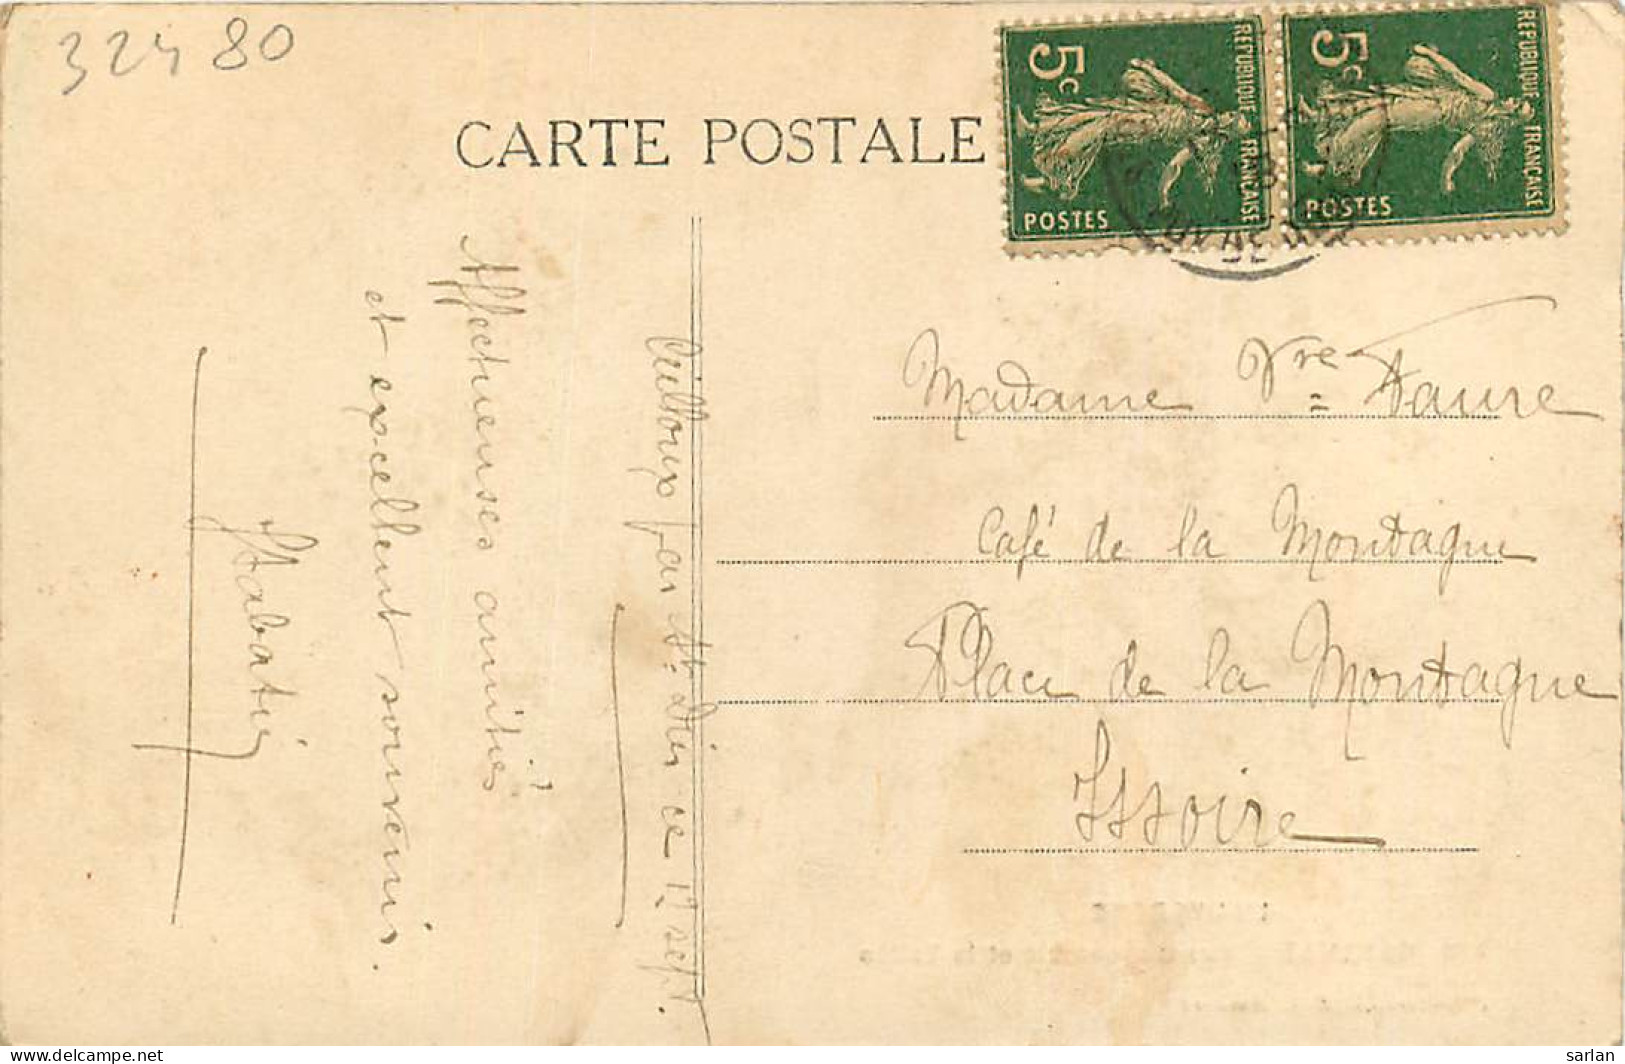 32480
CARTE POSTALE
5c
REPUBLIQUE FRANÇAISE
POSTES
5c
REPUBLIQUE FRANÇAISE
POSTES
par St Dier ce 12 sept.
Affectueuses amitiés
et excellent souvenir.
Madame Vve Faure
Café de la Montagne
Place de la Montagne
Issoire
delcampe.net
Sarlan